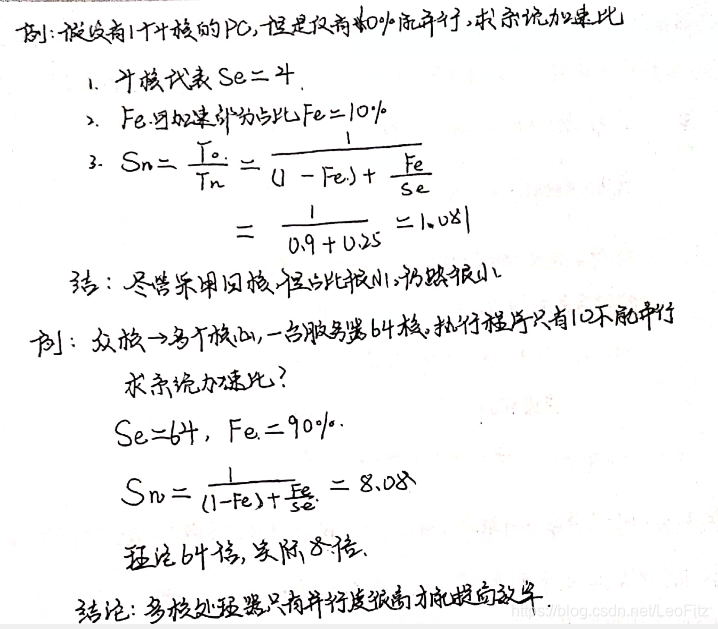 例:假设有1个4核的PC,但是仅有10%能并行,求系统加速比
1. 4核代表Se=4.
2. Fe可加速部分占比Fe=10%
3. Sn= To/Tn = 1/((1-Fe)+Fe/Se)
= 1/(0.9+0.25) =1.081
结:尽管采用四核,但占比很小,仍然很小
例:众核→多个核心,一台服务器64核,执行程序只有10不能并行
求系统加速比?
Se=64, Fe=90%.
Sn= 1/((1-Fe)+Fe/Se) = 8.08
理论64倍,实际8倍.
结论:多核处理器只有并行度很高才能提高效率.
https://blog.csdn.net/LeoFitz